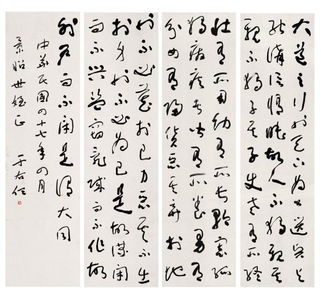 大道之行也天下為公選賢與
能講信修睦故人不獨親其
親不獨子其子使老有所終
壯有所用幼有所長矜寡孤
獨廢疾者皆有所養男有
分女有歸貨惡其棄於地
也不必藏於己力惡其不出
於身也不必為己是故謀閉
而不興盜竊亂賊而不作故
外戶而不閉是謂大同
中華民國四十七年四月
景昭世正 于右任